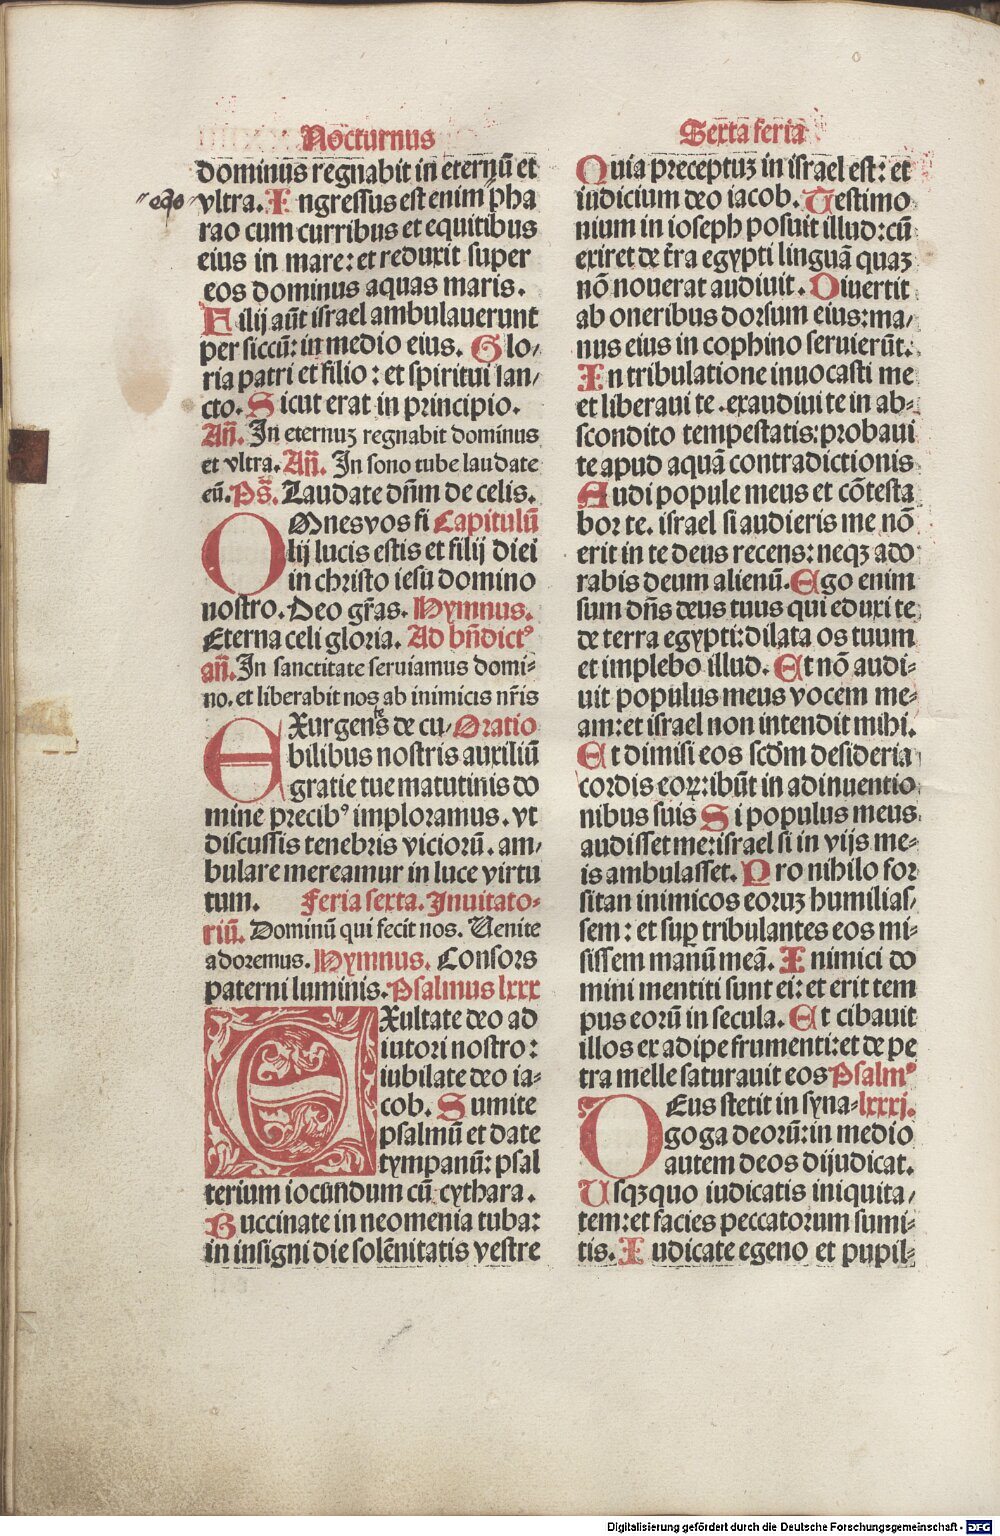 Nocturnus
dominus regnabit in eternū et
vltra. Ingressus est enim pha
rao cum curribus et equitibus
eius in mare: et reduxit super
eos dominus aquas maris.
Filij aūt israel ambulauerunt
per siccū: in medio eius. Glo/
ria patri et filio: et spiritui san/
cto. Sicut erat in principio.
Añ. In eternuꝫ regnabit dominus
et vltra. Añ. In sono tube laudate
eū. Ps̄. Laudate dn̄m de celis.
OMnes vos fi Capitulū
lij lucis estis et filij diei
in christo iesu domino
nostro. Deo gr̄as. Hymnus.
Eterna celi gloria. Ad bn̄dictꝰ
añ. In sanctitate seruiamus domi-
no. et liberabit nos ab inimicis nr̄is
EXurgens de cu/ Oratio
te
bilibus nostris auxiliū
gratie tue matutinis do
mine precibꝰ imploramus. vt
discussis tenebris viciorū. am/
bulare mereamur in luce virtu
tum. Feria sexta. Inuitato-
riū. Dominū qui fecit nos. Uenite
adoremus. Hymnus. Consors
paterni luminis. Psalmus lxxx
EXultate deo ad
iutori nostro:
iubilate deo ia-
cob. Sumite
psalmū et date
tympanū: psal
terium iocundum cū cythara.
Buccinate in neomenia tuba:
in insigni die solēnitatis vestre
Sexta feria
Quia preceptuꝫ in israel est: et
iudicium deo iacob. Testimo
nium in ioseph posuit illud: cū
exiret de t̄ra egypti linguā quaꝫ
nō nouerat audiuit. Diuertit
ab oneribus dorsum eius: ma/
nus eius in cophino seruierūt.
In tribulatione inuocasti me
et liberaui te. exaudiui te in ab-
scondito tempestatis: probaui
te apud aquā contradictionis
Audi popule meus et cōtesta
bor te. israel si audieris me nō
erit in te deus recens: neqꝫ ado
rabis deum alienū. Ego enim
sum dn̄s deus tuus qui eduxi te
de terra egypti: dilata os tuum
et implebo illud. Et nō audi-
uit populus meus vocem me-
am: et israel non intendit mihi.
Et dimisi eos scd̄m desideria
cordis eoꝝ: ibūt in adinuentio
nibus suis Si populus meus
audisset me: israel si in vijs me-
is ambulasset. Pro nihilo for
sitan inimicos eoruꝫ humilias/
sem: et sup̄ tribulantes eos mi-
sissem manū meā. Inimici do
mini mentiti sunt ei: et erit tem
pus eorū in secula. Et cibauit
illos ex adipe frumenti: et de pe
tra melle saturauit eos Psalmꝰ
DEus stetit in syna- lxxxj.
goga deorū: in medio
autem deos dijudicat.
Usqꝫquo iudicatis iniquita/
tem: et facies peccatorum sumi-
tis. Iudicate egeno et pupil-
Digitalisierung gefördert durch die Deutsche Forschungsgemeinschaft - DFG